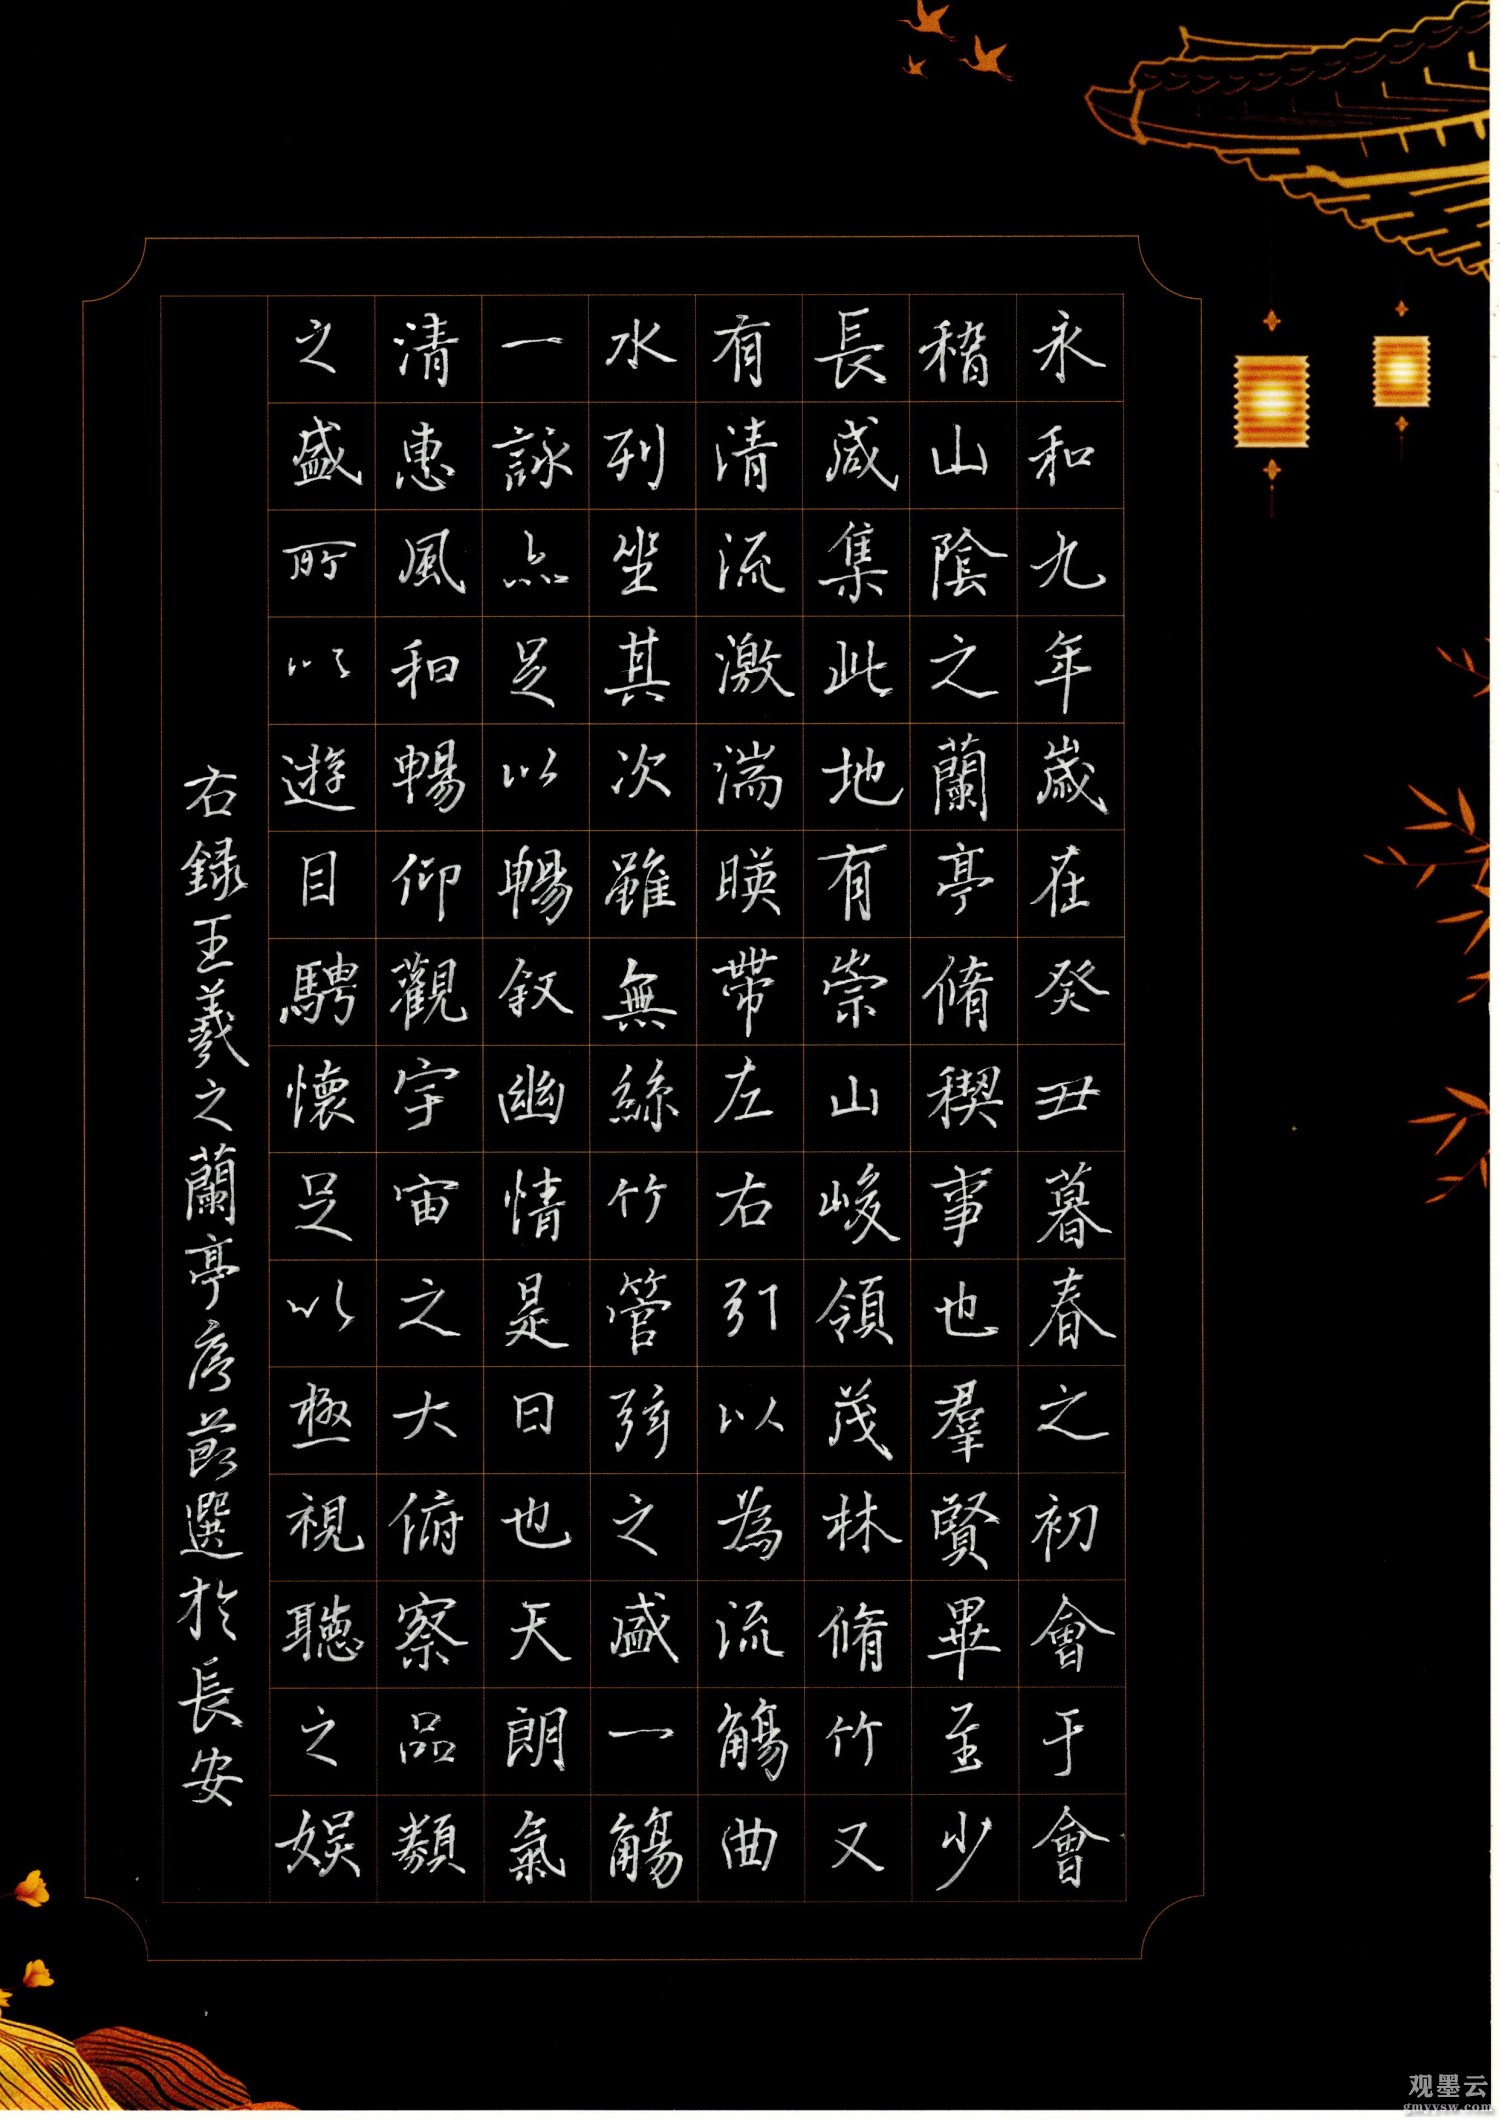 永和九年歲在癸丑暮春之初會于會
稽山陰之蘭亭脩稧事也羣賢畢至少
長咸集此地有崇山峻領茂林脩竹又
有清流激湍暎帶左右引以為流觴曲
水列坐其次雖無絲竹管弦之盛一觴
一詠亦足以暢叙幽情是日也天朗氣
清惠風和暢仰觀宇宙之大俯察品類
之盛所以遊目騁懷足以極視聽之娛
右録王羲之蘭亭序節選於長安
观墨云
gmyysw.com